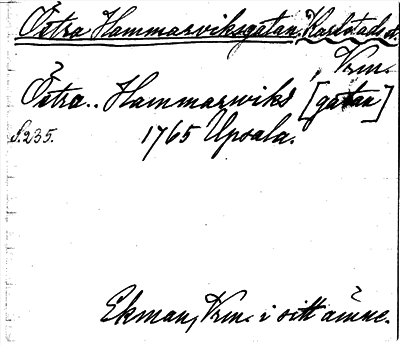 Östra Hammarviksgatan, Karlstads st.
Vrm.
Östra.. Hammarwiks [gatan]
S. 235. 1765 Upsala.
Ekman, Vrm. i sitt ämne.